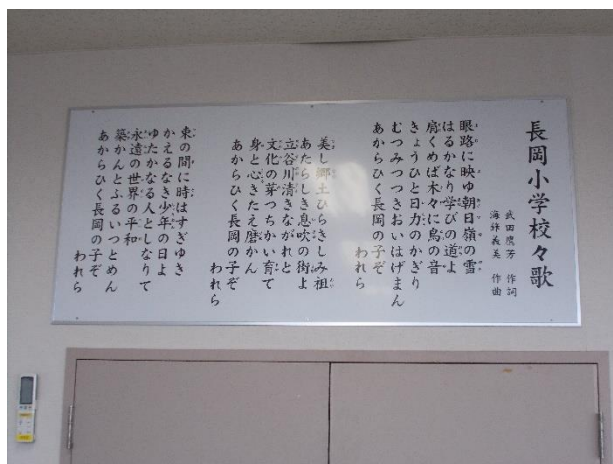 長岡小学校々歌
武田鷹芳 作詞
海鋒義美 作曲
眼路に映ゆ朝日嶺の雪
はるかなり学びの道よ
肩くめば木々に鳥の音
きょうひと日力のかぎり
むつみつつきおいはげまん
あからひく長岡の子ぞ
われら
美し郷土ひらきしみ祖
あたらしき息吹の街よ
立谷川清きながれと
文化の芽つちかい育て
身と心きたえ磨かん
あからひく長岡の子ぞ
われら
束の間に時はすぎゆき
かえるなき少年の日よ
ゆたかなる人としなりて
永遠の世界の平和
築かんとふるいつとめん
あからひく長岡の子ぞ
われら